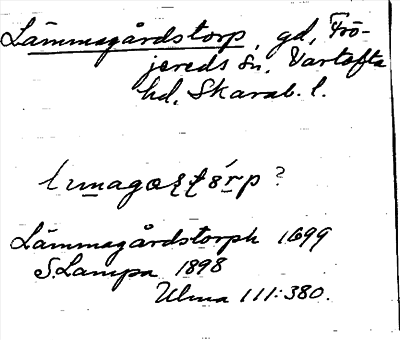 Lämmagårdstorp, gd, Frö-
jereds sn, Vartofta
hd, Skarab. l.
Lämmagårdstorph 1699
S. Lampa 1898
Ulma 111:380.